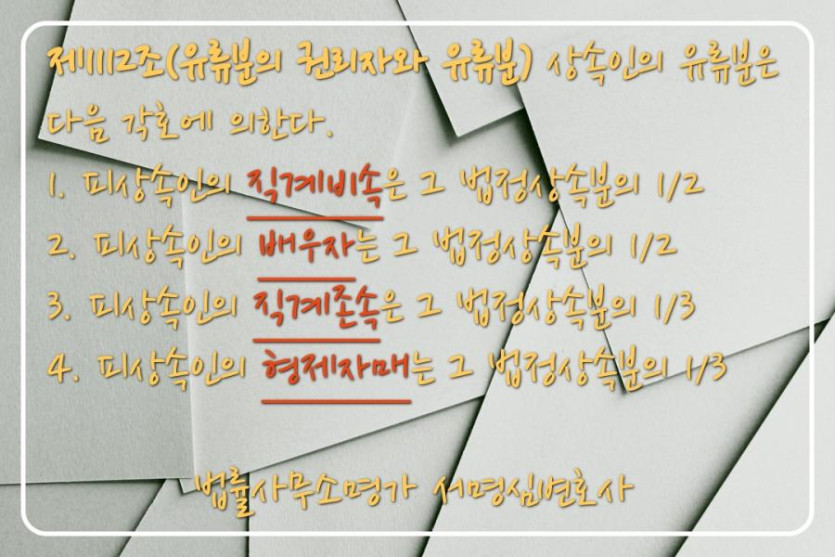 제1112조(유류분의 권리자와 유류분) 상속인의 유류분은
다음 각호에 의한다.
1. 피상속인의 직계비속은 그 법정상속분의 1/2
2. 피상속인의 배우자는 그 법정상속분의 1/2
3. 피상속인의 직계존속은 그 법정상속분의 1/3
4. 피상속인의 형제자매는 그 법정상속분의 1/3
법률사무소명가 서명심변호사